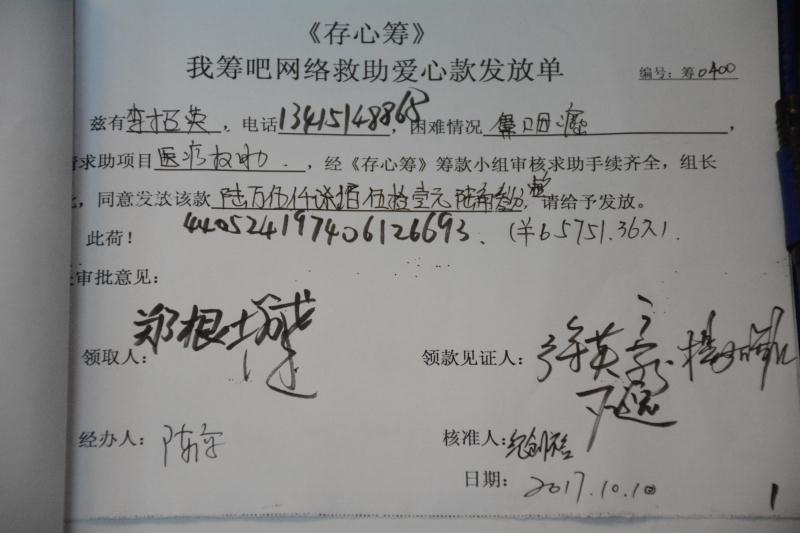 《存心筹》
我筹吧网络救助爱心款发放单
编号：筹0400
兹有李招英，电话13415148865，困难情况鼻咽癌，
请求助项目医疗救助．，经《存心筹》筹款小组审核求助手续齐全，组长
，同意发放该款陆万伍仟柒佰伍拾壹元陆角，请给予发放。
此荷！ 440524197406126693. (￥65751.36
审批意见：
领取人：郑根 领款见证人：
经办人：陈 核准人：
日期：2017.10.10
1